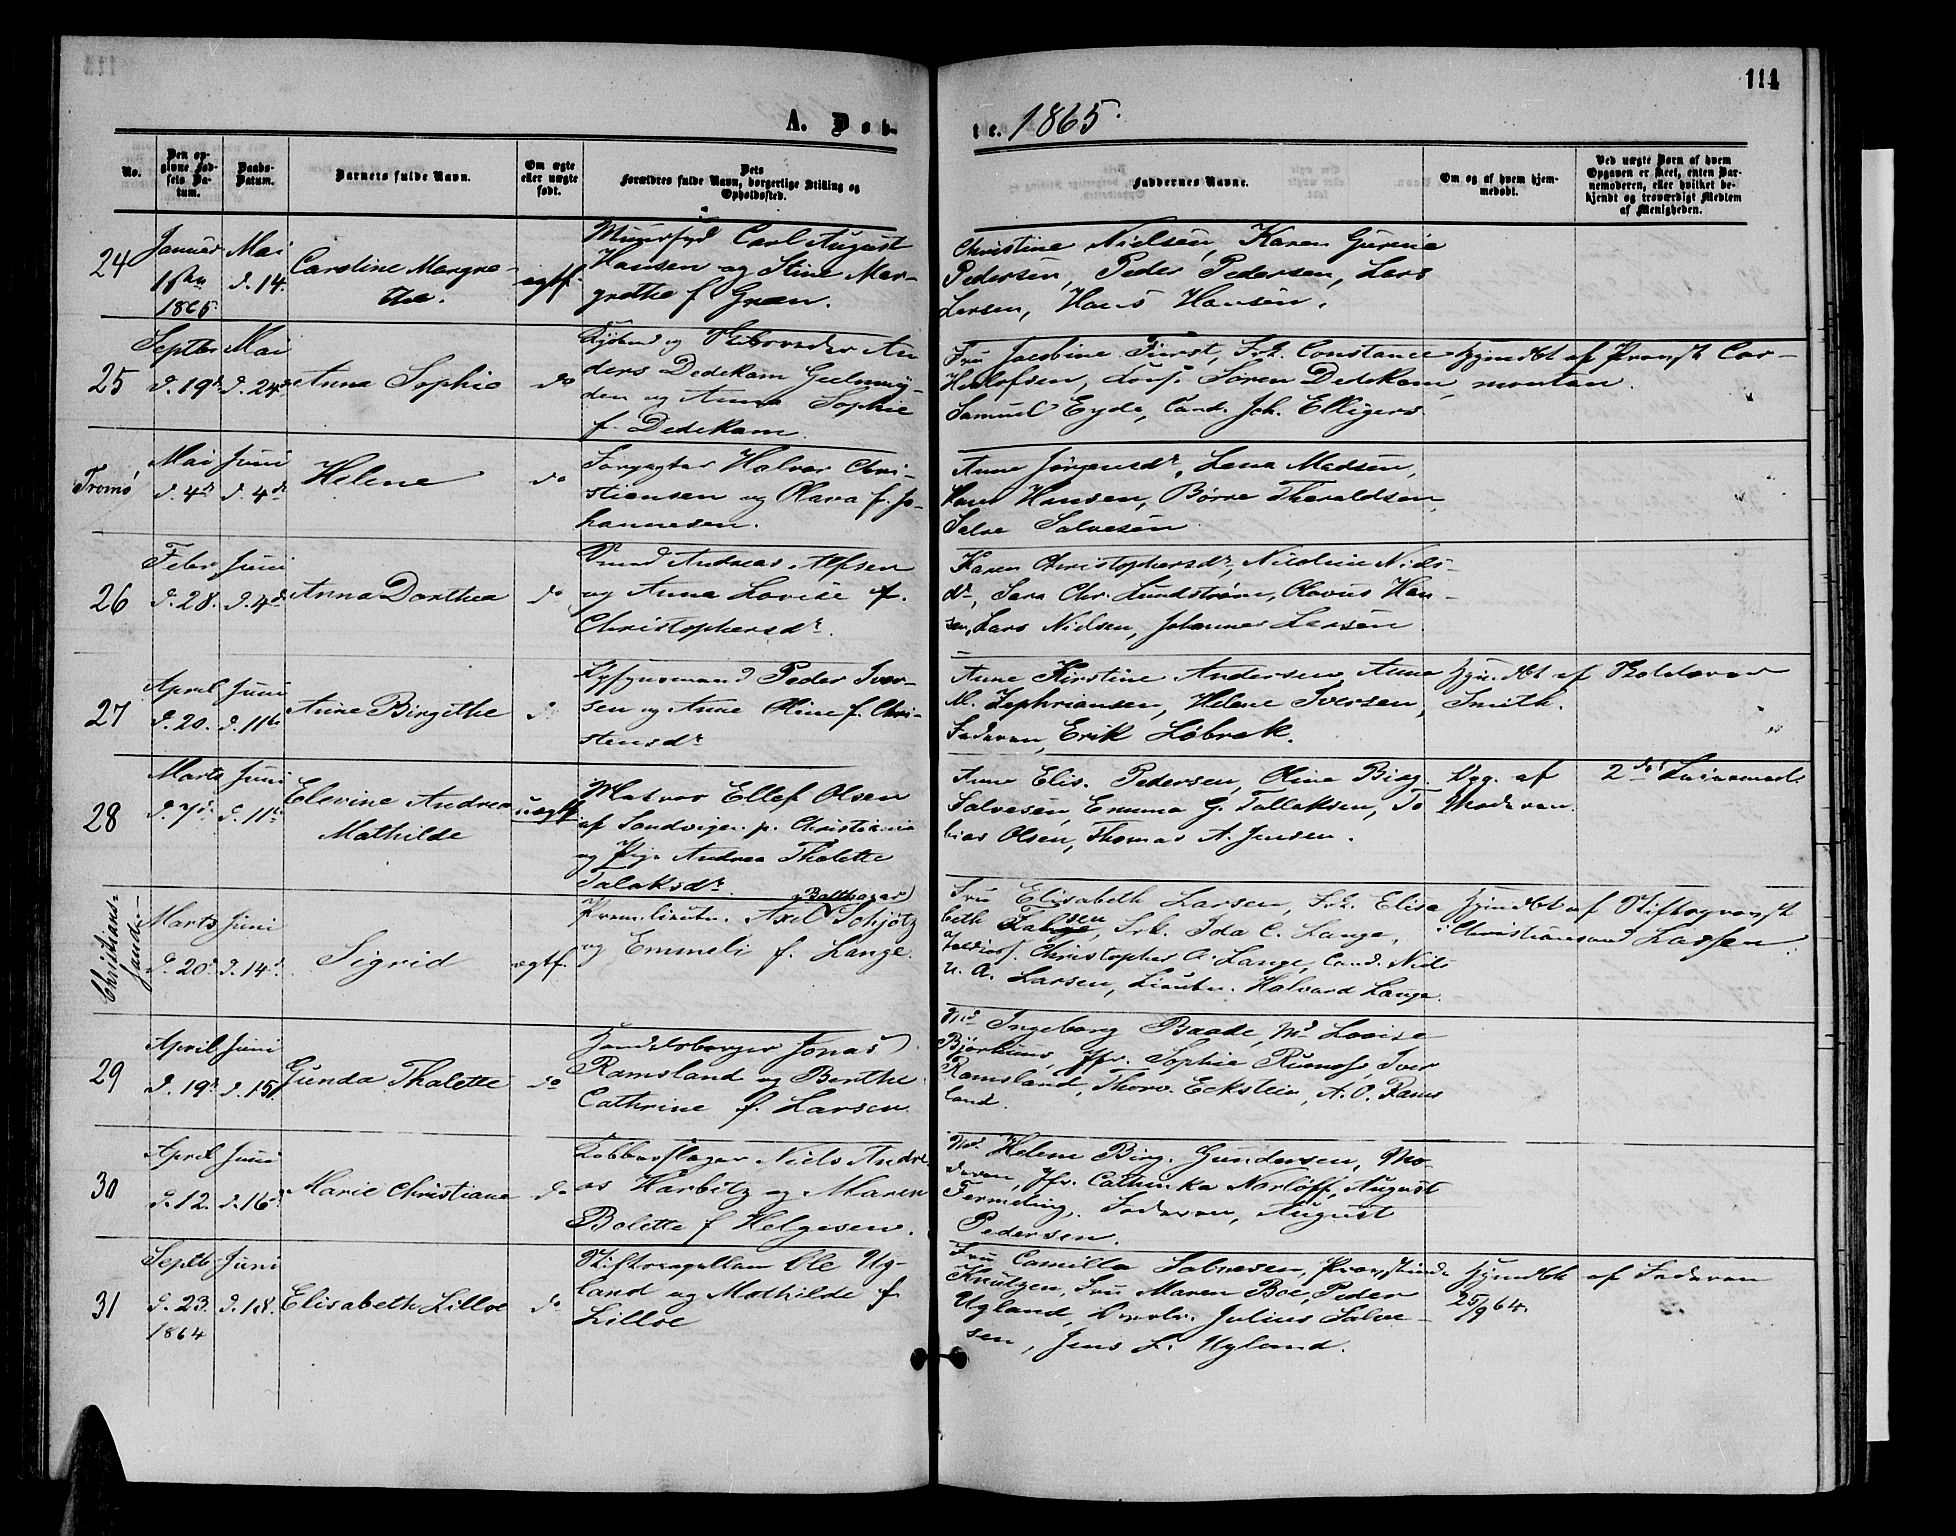 114
A. Døb-
te. 1865.
No.
Den opgivne Fødsels Datum.
Daabs-Datum.
Barnets fulde Navn.
Om ægte eller uægte født.
Dets Forældres fulde Navn, borgerlige Stilling og Opholdssted.
Faddernes Navne.
Om og af hvem hjemmedøbt.
Ved uægte Børn af hvem Opgaven er skeet, enten Barnemoderen, eller hvilket bekjendt og troværdigt Medlem af Menigheden.
24
Januar
1865
Mai
d. 14.
Caroline Margre-
the.
egtf.
Carl August
Hansen og Stine Mar-
grethe f Grøn.
Christine Nielsen, Karen Gurine
Pedersen, Peder Pedersen, Lars
Larsen, Hans Hansen.
25
Septbr
d. 19d
Mai
d. 24d
Anna Sophie
do
An
ders Dedekam
den og Anna Sophie
f. Dedekam.
Fru Jacobine Fürst, Frk. Constance
Søren Dedekam,
Samuel Eyde, Cand. Joh. Elligers
Hjmdbt af Provst Cor-
montan.
Tromö
Mai
d. 4d
Juni
d. 4d
Helene
do
Halvor Chri-
stiansen og Olava f. Jo-
hannesen.
Anne Jörgensdr, Lena Madsen,
Hansen, Börre Theraldsen,
Salve Salvesen
26
Febr
d. 28.
Juni
d. 4d
Anna Dorthea
do
Andreas Alfsen
og Anne Lovise f.
Christophersdr.
Karen Christophersdr, Nicoline Niels-
dr, Sara Chr. Lundström, Olavus Han-
sen, Lars Nielsen, Johannes Larsen
27
April
d. 20.
Juni
d. 11te
Anne Birgithe
do
Peder Iver-
sen og Anne Oline f. Chri-
stensdr
Anne Kirstine Andersen, Anne
M. Zephriansen, Helene Iversen,
Faderen, Erik Löbrok.
Hjmdbt af
Smith.
28
Marts
d. 7d.
Juni
d. 11te
Elevine Andrea
Mathilde
uegtf
Matros Ellef Olsen
af Sandvigen p. Christiania
og Pige Andrea Thalette
Talaksdr.
Anne Elis. Pedersen, Oline Birg.
Salvesen, Emma G. Tallaksen, To
bias Olsen, Thomas A. Jensen.
Opg. af
Moderen.
2det Leiermaal
Christians-
sand
Marts
d. 20d
Juni
d. 14d
Sigrid
egtf.
Balthazar
Premlieutn. Axel Schjötz
og Emmeli f. Lange.
Fru Elisabeth Larsen, Frk. Elisa
beth Falsen, Frk. Ida C. Lange,
Christopher A. Lange, Cand. Niels
u. A. Larsen, Lieutn. Halvard Lange.
Hjmdbt af Stiftsprovst
i Christiansand Larssen.
29
April
d. 19d
Juni
d. 15d
Gunda Thalette
do
Handelsborger Jonas
Ramsland og Berthe
Cathrine f. Larsen
Md Ingeborg Baade, Md Lovise
Björkums, Jfr. Sophie Iver
Ramsland, Thorv. Eckstein, A. O. Rams
land.
30
April
d. 12.
Juni
d. 16d
Marie Christiane
do
Kobberslager Niels Andre
as Harbitz og Maren
Bolette f Helgesen.
Md Helene Birg. Gundersen, Mo-
deren, Jfr. Cathinka Norlöff, August
Fermeling, Faderen, August
Pedersen.
31
Septb
d. 23.
1864
Juni
d. 18.
Elisabeth Lilloe
do
Stiftscapellan Ole Ug-
land og Mathilde f
Lilloe
Fru Camilla Salvesen, Provstinde
Knutzen, Fru Maren Boe, Peder
Ugland, Julius Salve-
sen, Jens L. Ugland.
Hjmdbt af Faderen
25/9 64.